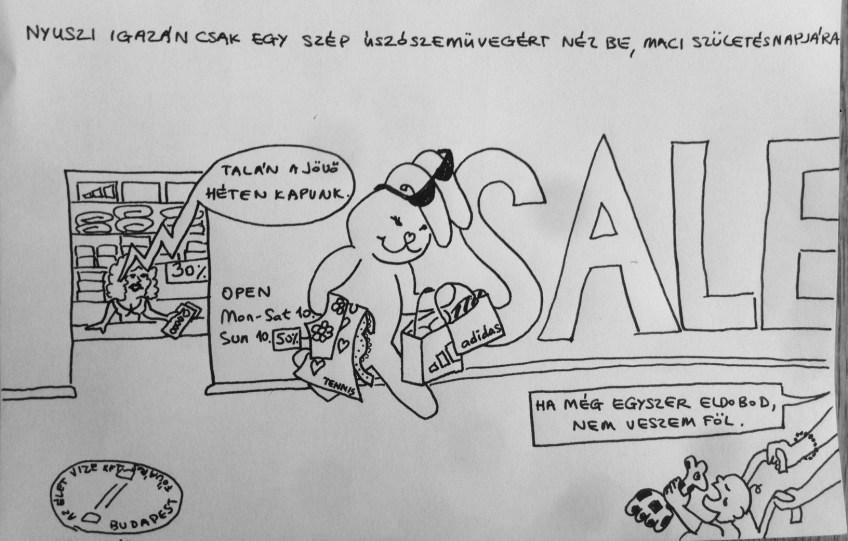 NYUSZI IGAZÁN CSAK EGY SZÉP ÚSZÓSZEMÜVEGÉRT NÉZ BE, MACI SZÜLETÉSNAPJÁRA
TALÁN A JÖVŐ
HÉTEN KAPUNK.
30%
OPEN
Mon-Sat 10.
Sun 10.
50%
TENNIS
adidas
SALE
HA MÉG EGYSZER ELDOBOD,
NEM VESZEM FÖL.
AZ ÉLET VIZE KFT
BUDAPEST